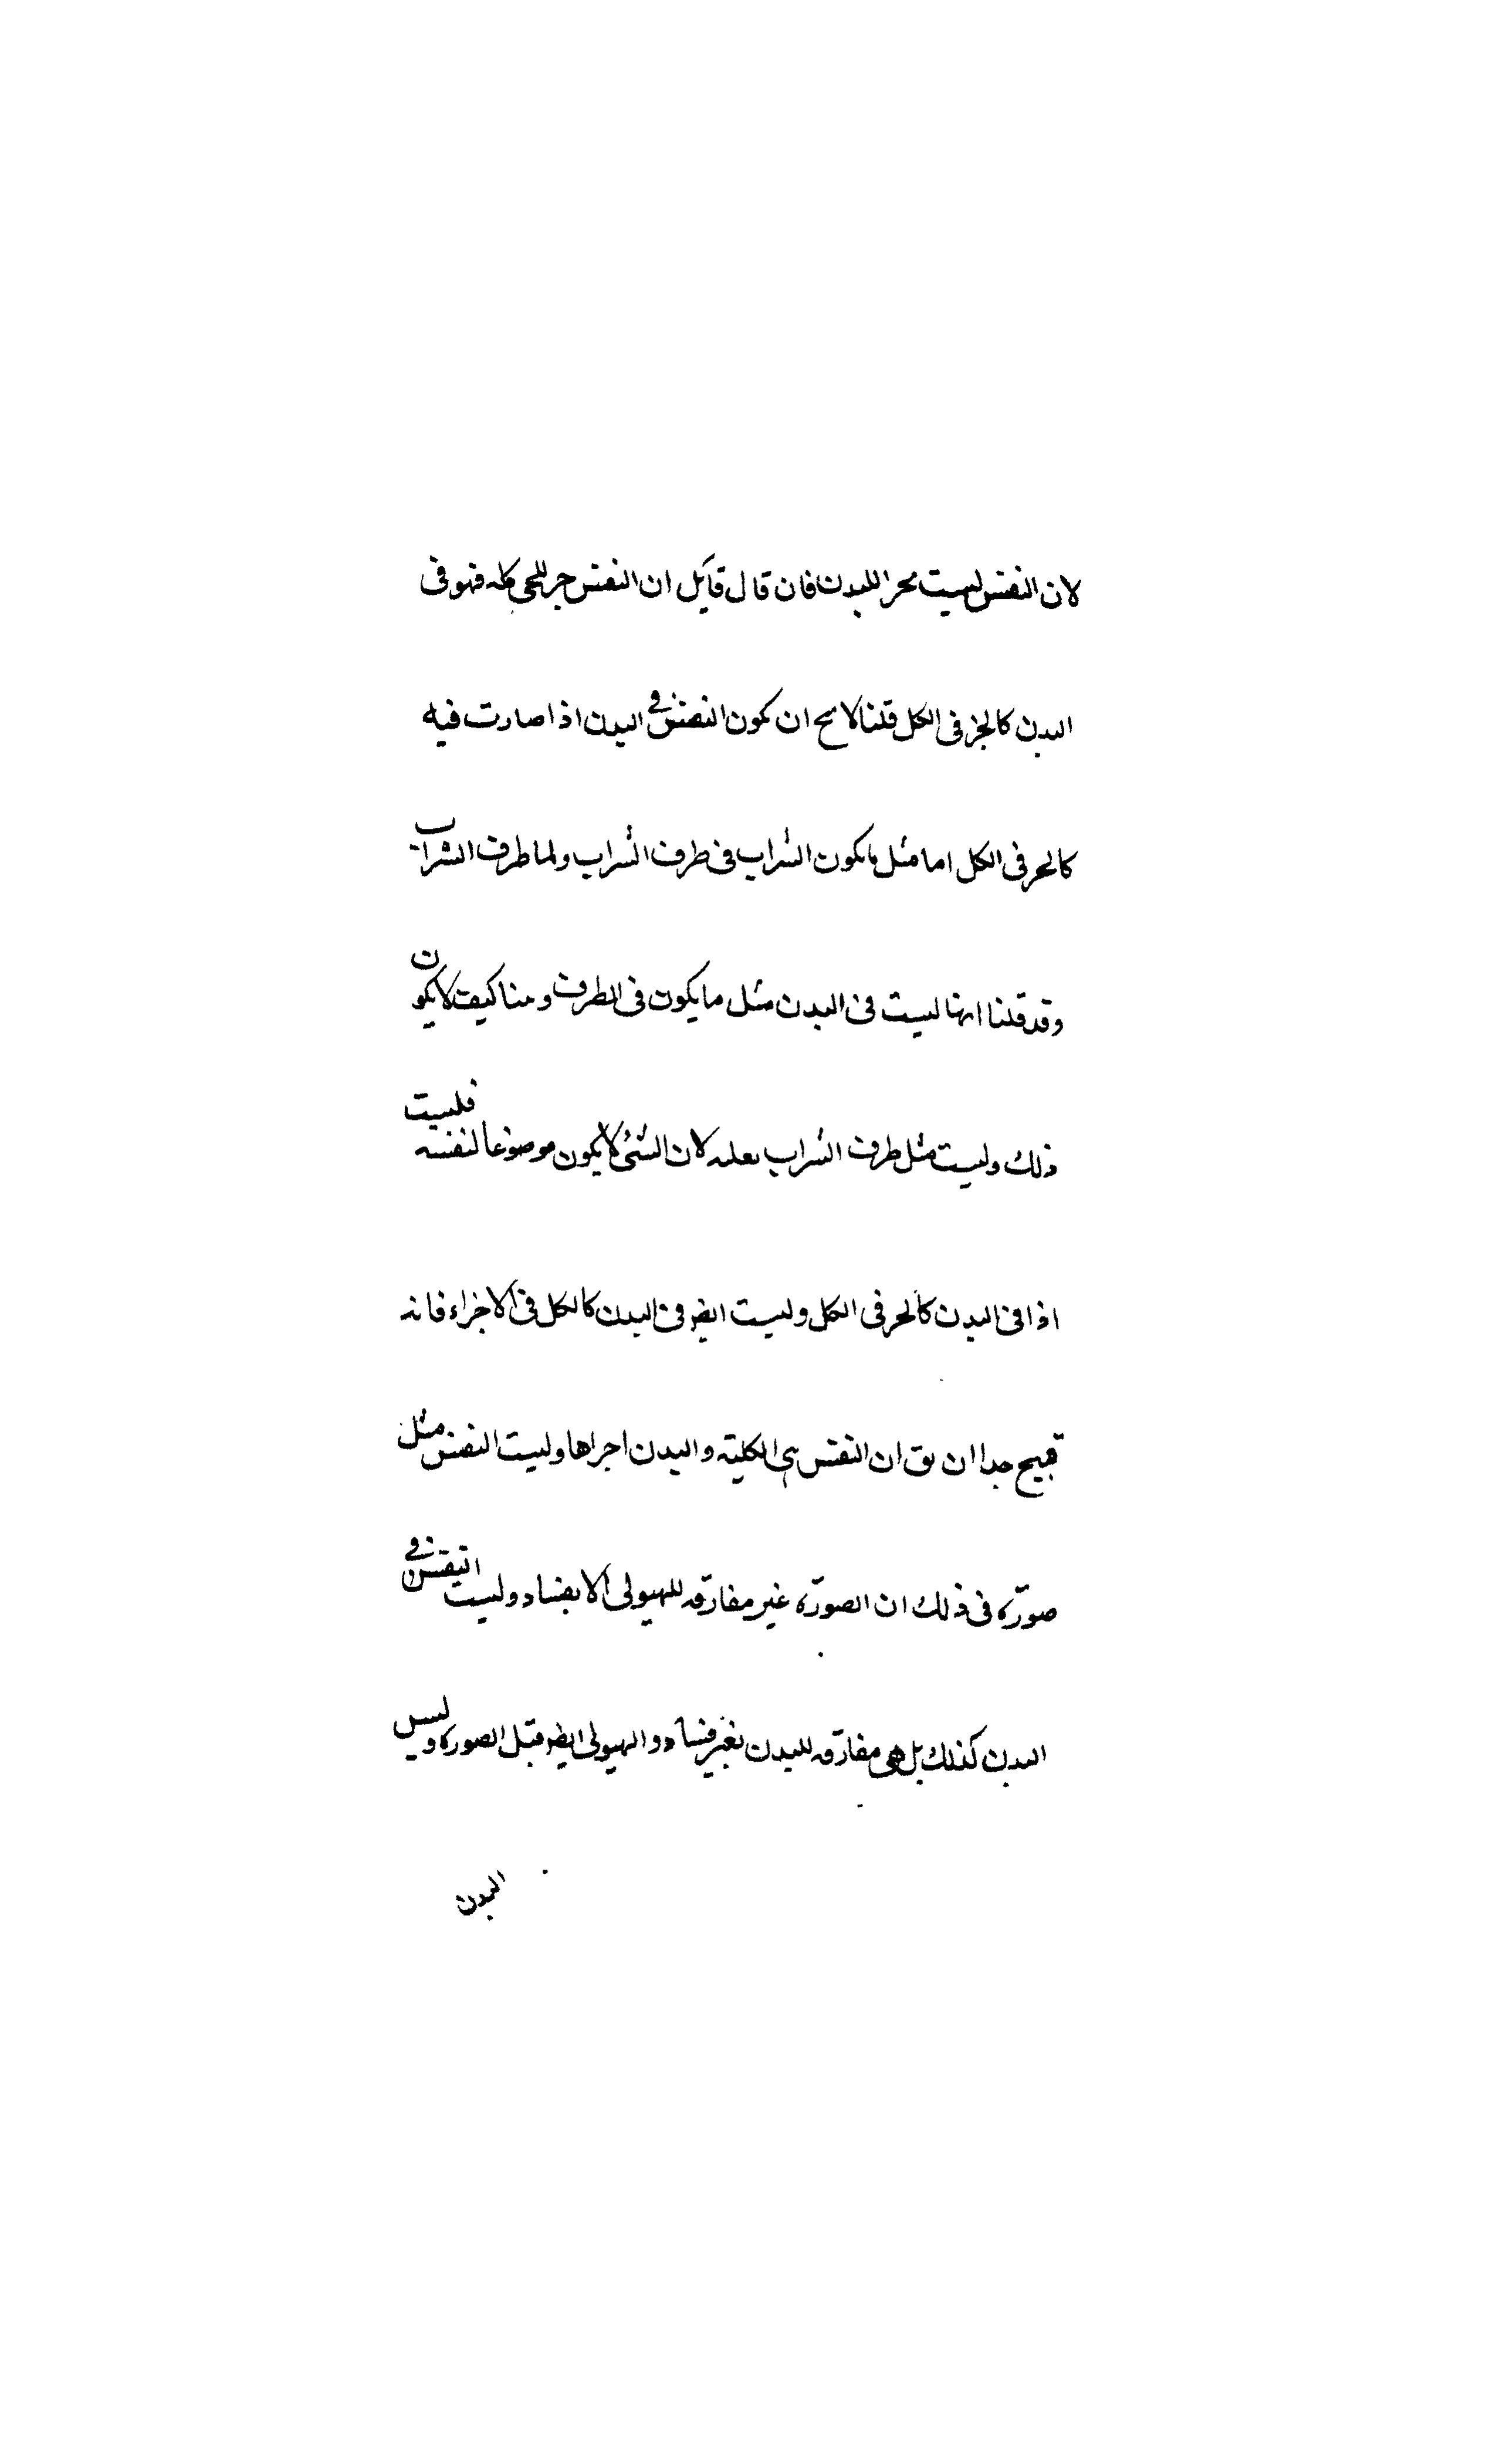 لان النفس ليست بجزا للبدن فان قال قايل ان النفس جز للحى كله فهو فى
البدن كالجز فى الكل قلنا لا يح ان يكون النفس فى البدن اذا صارت فيه
كالجز فى الكل اما مثل ما يكون الشراب فى ظرف الشراب واما ظرف الشراب
وقد قلنا انها ليست فى البدن مثل ما يكون فى الظرف وبينا كيف لا يكون
ذلك وليست مثل ظرف الشراب بعينه لان الشئ لا يكون موضوعا لنفسه فليست
اذا فى البدن كالجز فى الكل وليست ايضا فى البدن كالكل فى الاجزاء فانه
قبيح جدا ان يق ان النفس هى الكلية والبدن اجزاها وليست النفس مثل
صورة فى ذلك ان الصورة غير مفارقه للهيولى الا بفساد وليست النفس فى
البدن كذلك بل هى مفارقه للبدن بغير فساد والهيولى ايضا قبل الصورة وليس
البدن